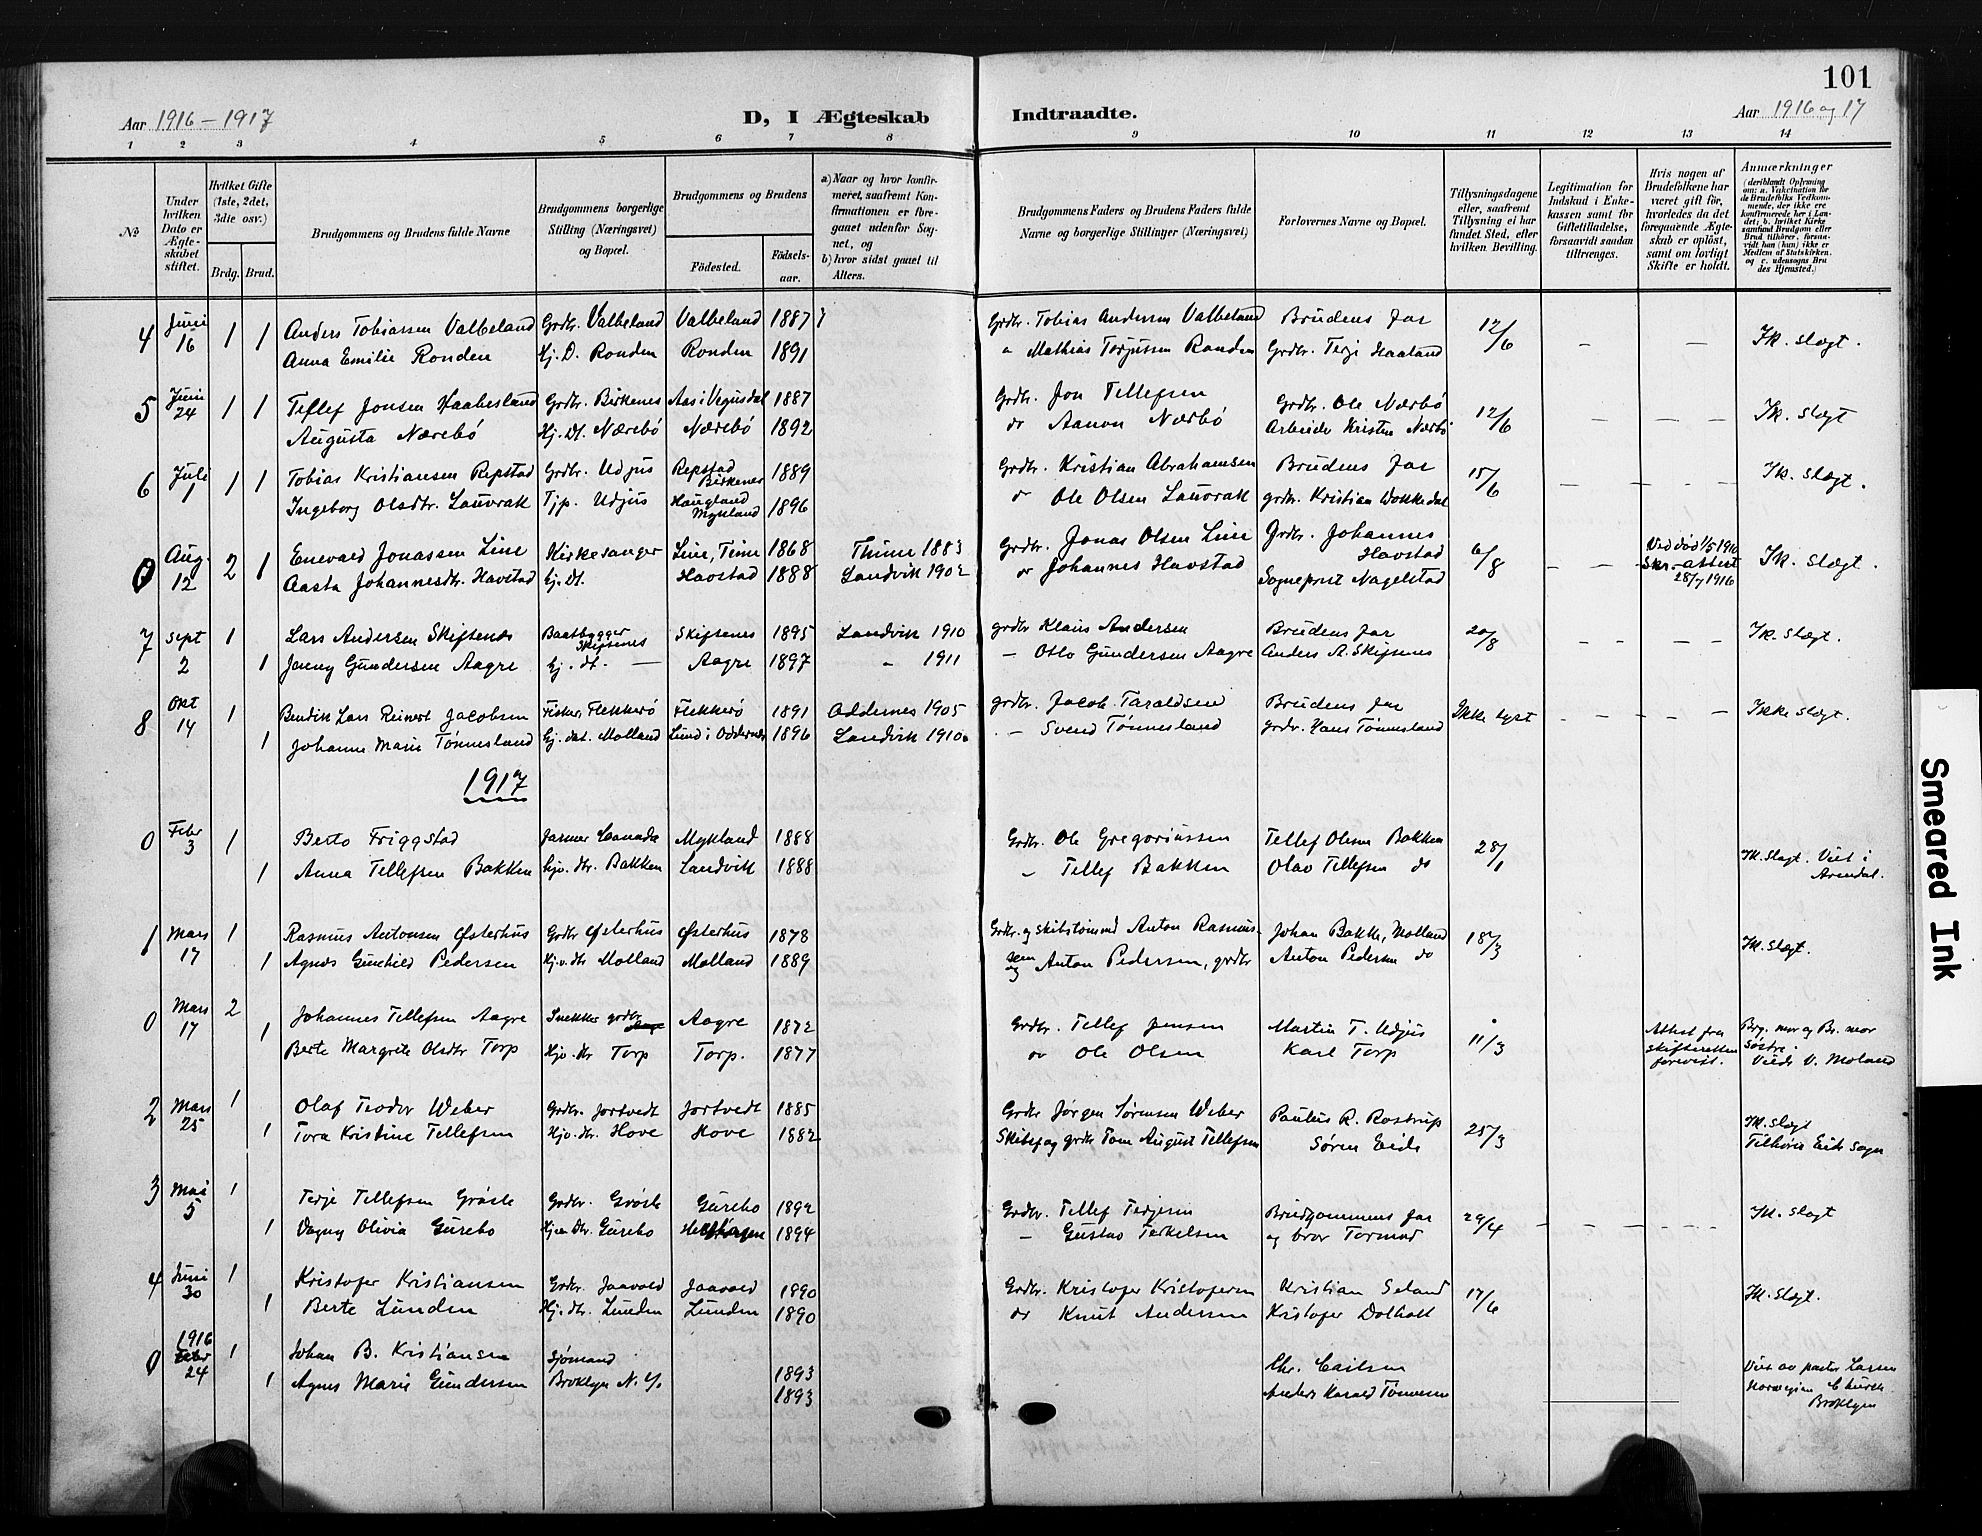 101
Aar 1916 – 1917
D, I Ægteskab Indtraadte.
Aar 1916 og 17
1 2 3 4 5 6 7 8 9 10 11 12 13 14
№
Under hvilken Dato er Ægteskabet stiftet.
Hvilket Gifte (1ste, 2det, 3die osv.)
Brdg. Brud.
Brudgommens og Brudens fulde Navne
Brudgommens borgerlige Stilling (Næringsvei) og Bopæl.
Brudgommens og Brudens
Fødested.
Fødselsaar.
a) Naar og hvor konfirmeret, saafremt Konfirmationen er foregaaet udenfor Sognet, og
b) hvor sidst gaaet til Alters.
Brudgommens Faders og Brudens Faders fulde Navne og borgerlige Stillinger (Næringsvei)
Forlovernes Navne og Bopæl.
Tillysningsdagene eller, saafremt Tillysning ei har fundet Sted, efter hvilken Bevilling.
Legitimation for Indskud i Enkekassen samt for Giftetilladelse, forsaavidt saadan tiltrænges.
Hvis nogen af Brudefolkene har været gift før, hvorledes da det foregaaende Ægteskab er opløst, samt om lovligt Skifte er holdt.
Anmærkninger
(deriblandt Oplysning om: a. Vakcination for de Brudefolks Vedkommende, der ikke ere konfirmerede her i Landet; b. hvilket Kirkesamfund Brudgom eller Brud tilhører, forsaavidt han (hun) ikke er Medlem af Statskirken, og c. udensogns Brudes Hjemsted.
4 Juni 16 1 1 Anders Tobiassen Valbeland Grdbr. Valbeland Valbeland 1887 Grdbr. Tobias Andersen Valbeland Brudens far 12/6 – – Ik. slægt.
Anna Emilie Ronden Hj. D. Ronden Ronden 1891 Mathias Terjussen Ronden Grdbr. Terje Haaland
5 Juni 24 1 1 Tellef Jonsen Haabesland Grdbr. Birkenes Aas i Vegusdal 1887 Grdbr. Jon Tellefsen Grdbr. Ole Nærbö 12/6 – – – Ik. slægt
Augusta Nærebö Hj. Dt. Nærebö Nærebö 1892 do Aanon Nærbö Arbeider Kristen Nærbö
6 Juli 1 1 1 Tobias Kristiansen Repstad Grdbr. Udjus Repstad Birkenes 1889 Grdbr. Kristian Abrahamsen Brudens far 15/6 – – – Ik. slægt.
Ingeborg Olsdtr. Lauvrak Tjp. Udjus Haugland Mykland 1896 do Ole Olsen Lauvrak grdbr. Kristian
0 Aug. 12 2 1 Enevald Jonassen Line Kirkesanger Line, Time 1868 Thime 1883 Grdbr. Jonas Olsen Line Grdbr. Johannes Havstad 6/8 – – Ved död 1/5 1910 Skr. attest 28/7 1916 Ik. slægt.
Aasta Johannesdtr. Havstad Hj. Dt. Havstad 1888 Landvik 1902 do Johannes Havstad Sogneprest Nagelstad
7 Sept 2 1 Lars Andersen Skifsenes Baatbygger Skifsenes Skifsenes 1895 Landvik 1910 grdbr Klaus Andersen Brudens far 20/8 – – – – Ik. slægt.
1 Jenny Gundersen Aagre Hj. dt. — Aagre 1897 „ 1911 – Otto Gundersen Aagre Anders A. Skifsenes
8 Okt 14 1 Bendik Lars Reinert Jacobsen Fisker, Flekkerö Flekkerö 1891 Oddernes 1905 grdbr. Jacob Taraldsen Brudens far Ikke lyst – – – – Ikke slægt.
1 Johanne Marie Tönnesland Hj. dat. Molland Lund i Oddernes 1896 Landvik 1910. – Svend Tönnesland grdbr. Hans Tönnesland
1917
0 Febr 3 1 Berto Friggstad farmer Canada Mykland 1888 Grdbr. Ole Gregoriussen Tellef Olsen Bakken 28/1 Ik. slægt. Viet i Arendal.
1 Anna Tellefsen Bakken Hjv. dtr. Bakken Landvik 1888 – Tellef Bakken Olav Tellefsen do
1 Mars 17 1 Rasmus Antonsen Østerhus Grdbr Østerhus Østerhus 1878 Grdbr. og skibstømmd Anton Rasmussen Johan Bakke, Molland 18/3 Ik. slægt.
1 Agnes Gunhild Pedersen Hj.v. dtr Molland Molland 1889 og Anton Pedersen, grdbr Anton Pedersen do
0 Mars 17 2 Johannes Tellefsen Aagre Snekker grdbr Aagre 1872 Grdbr. Tellef Jensen Martin T. Udjus 11/3 Attest fra skifteretten forevist. Brg. mor og Br. mor søstre. Viede V. Moland
1 Berte Margrete Olsdtr Torp Hjv. dtr Torp Torp. 1877 do Ole Olsen Karl Torp
2 Mars 25 1 Olaf Teodor Weber Grdbr. Jortvedt Jortvedt 1885 Grdbr Jørgen Sørensen Weber Paulus R. Rostrup 25/3 Ik. slægt
1 Tora Kristine Tellefsen Hjv. dtr. Hove Hove 1882 Skibsf og grdbr Tom August Tellefsen Søren Eide Tilhører Eide Sogn
3 Mai 5 1 Terje Tellefsen Gröste Grdbr. Gröste Gurebo 1892 Grdbr. Tellef Terjesen Brudgommens far 29/4 – – – – Ik. slægt
1 Dagny Olivia Gurebo Hjv. Dtr. Gurebo 1894 – Gustav Terkelsen og bror Tormod
4 Juni 30 1 Kristofer Kristiansen Grdbr. Jaavold Jaavold 1890 Grdbr. Kristofer Kristofersen Kristian Seland 17/6 Ik. slægt.
1 Berte Lunden Hj. dtr. Lunden Lunden 1890 do Knut Andersen Kristofer Dolholt
0 1916 24 1 Johan B. Kristiansen Sjömand 1893 Chr. Carlsen Viet av pastor Larsen
1 Agnes Marie Gundersen Broklyn N.Y. 1893 Anders Harald Tönnesen Norwegian Church Broklyn
Smeared Ink